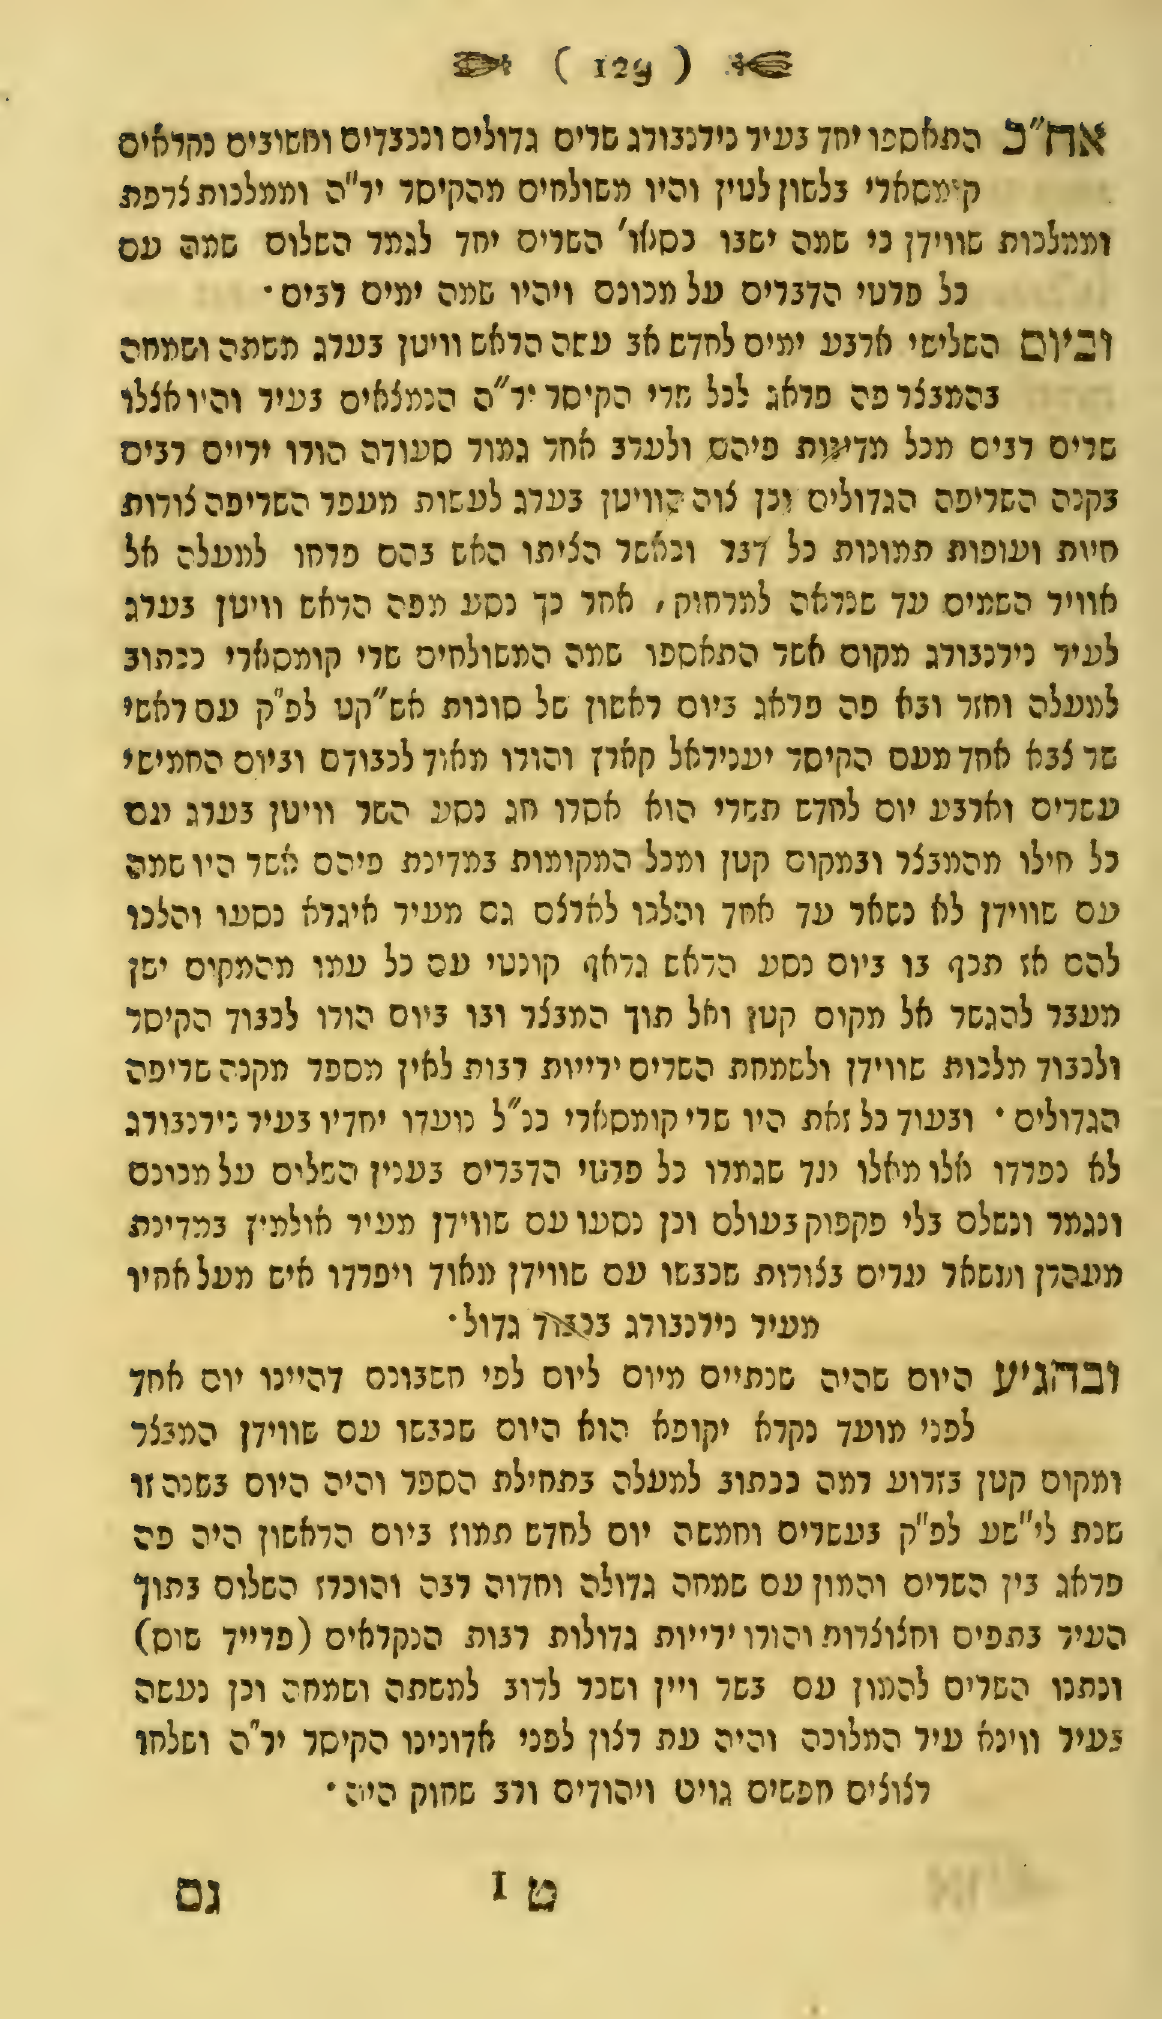 ( 129 )
אח"כ התאספו יחד בעיר נירנבורג שרים גדולים ונכבדים וחשובים נקראים
קומסארי בלשון לטין והיו משולחים מהקיסר יר"ה וממלכות צרפת
וממלכות שווידן כי שמה ישבו כסאו' השרים יחד לגמר השלום שמה עם
כל פרטי הדברים על מכונם ויהיו שמה ימים רבים·
וביום השלישי ארבע ימים לחדש אב עשה הראש וויטן בערג משתה ושמחה
בהמבצר פה פראג לכל שרי הקיסר יר"ה הנמצאים בעיר והיו אצלו
שרים רבים מכל מדינות פיהם ולערב אחר גמור סעודה הורו יריים רבים
בקנה השריפה הגדולים וכן צוה הוויטן בערג לעשות מעפר השריפה צורות
חיות ועופות תמונות כל דבר וכאשר הציתו האש בהם פרחו למעלה אל
אוויר השמים עד שנראה למרחוק, אחר כך נסע מפה הראש וויטן בערג
לעיר נירנבורג מקום אשר התאספו שמה המשולחים שרי קומסארי ככתוב
למעלה וחזר ובא פה פראג ביום ראשון של סוכות אש"קט לפ"ק עם ראשי
שר צבא אחד מעם הקיסר יעניראל קארץ והורו מאוד לכבודם וביום החמישי
עשרים וארבע יום לחדש תשרי הוא אסרו חג נסע השר וויטן בערג עם
כל חילו מהמבצר ובמקום קטן ומכל המקומות במדינת פיהם אשר היו שמה
עם שווידן לא נשאר עד אחד והלכו לארצם גם מעיר איגרא נסעו והלכו
להם אז תכף בו ביום נסע הראש גראף קונטי עם כל עמו מהמקום ישן
מעבר להגשר אל מקום קטן ואל תוך המבצר ובו ביום הורו לכבוד הקיסר
ולכבוד מלכות שווידן ולשמחת השרים ירייות רבות לאין מספר מקנה שריפה
הגדולים· ובעוד כל זאת היו שרי קומסארי כנ"ל נועדו יחדיו בעיר נירנבורג
לא נפרדו אלו מאלו עד שגמרו כל פרטי הדברים בענין השלום על מכונם
ונגמר ונשלם בלי פקפוק בעולם וכן נסעו עם שווידן מעיר אולמיץ במדינת
מעהרן ומשאר ערים בצורות שכבשו עם שווידן מאוד ויפרדו איש מעל אחיו
מעיר נירנבורג בכבוד גדול·
ובהגיע היום שהיה שנתיים מיום ליום לפי חשבונם דהיינו יום אחד
לפני מועד נקרא יקופא הוא היום שכבשו עם שווידן המבצר
ומקום קטן בזרוע רמה ככתוב למעלה בתחילת הספר והיה היום בשנה זו
שנת לי"שע לפ"ק בעשרים וחמשה יום לחדש תמוז ביום הראשון היה פה
פראג בין השרים והמון עם שמחה גדולה וחדוה רבה והוכרז השלום בתוך
העיר בתפים וחצוצרות והורו ירייות גדולות רבות הנקראים (פרייד שוס)
ונתנו השרים להמון עם בשר ויין ושכר לרוב למשתה ושמחה וכן נעשה
בעיר ווינא עיר המלוכה והיה עת רצון לפני אדונינו הקיסר יר"ה ושלחו
רצוצים חפשים גוים ויהודים ורב שחוק היה·
ט I
גם